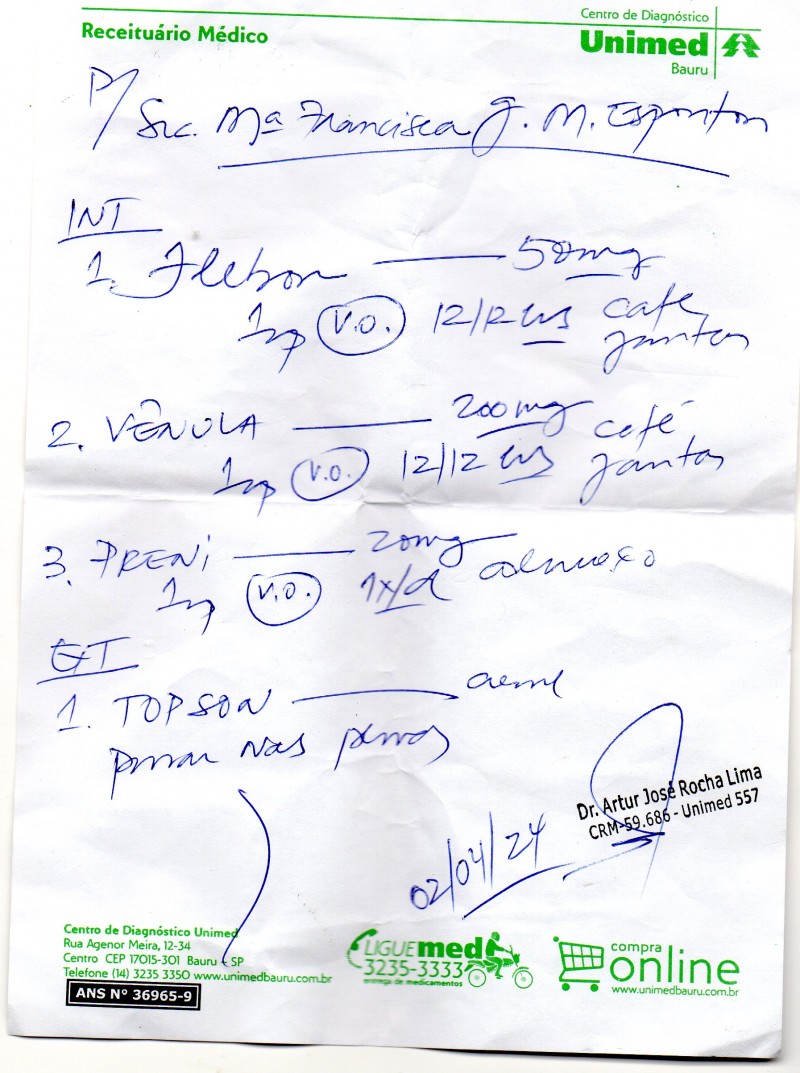 Receituário Médico
Centro de Diagnóstico
Unimed
Bauru
P/ Sra. Mª Francisca J. M. Esponton
INT
1. Flebon 50mg
1cp V.O. 12/12hs café
jantar
2. VÊNULA 200mg
1cp V.O. 12/12hs café
jantar
3. PRENI 20mg
1cp V.O. 1x/d almoço
1. TOPSON creme
passar nas pernas
02/04/24
Dr. Artur José Rocha Lima
CRM-59.686 - Unimed 557
Centro de Diagnóstico Unimed
Rua Agenor Meira, 12-34
Centro CEP 17015-301 Bauru - SP
Telefone (14) 3235 3350 www.unimedbauru.com.br
ANS Nº 36965-9
LIGUEmed
3235-3333
entrega de medicamentos
compra
online
www.unimedbauru.com.br